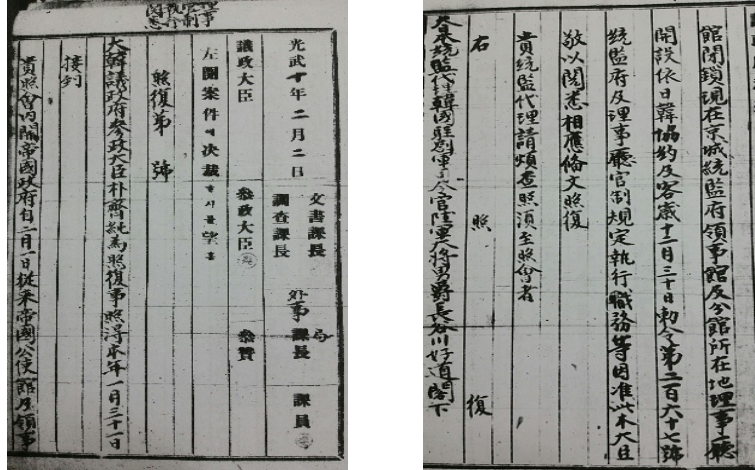 理事
官制
執行
閱悉
光武十年二月二日
文書課長
調査課長
外事局課長
課員
議政大臣
參政大臣
參贊
左開案件에決裁하시믈望홈
照復第 號
大韓議政府參政大臣朴齊純爲照復事照得本年一月三十一日
接到
貴照會內開帝國政府自二月一日從來帝國公使館及領事
館閉鎖現在京城統監府領事館及分館所在地理事廳
開設依日韓協約及客歲十二月三十日勅令第二百六十七號
統監府及理事廳官制規定執行職務等因准此本大臣
敬以閱悉相應備文照復
貴統監代理請煩査照須至照會者
右 照 復
大日本統監代理韓國駐劄軍司令官陸軍大將男爵長谷川好道閣下